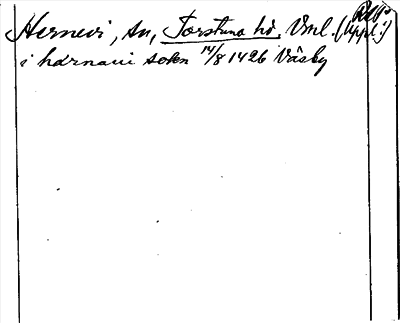 Hernevi, sn, Torstuna hd. Vml. (Uppl.)
i härnaui sokn 14/8 1426 Väsby